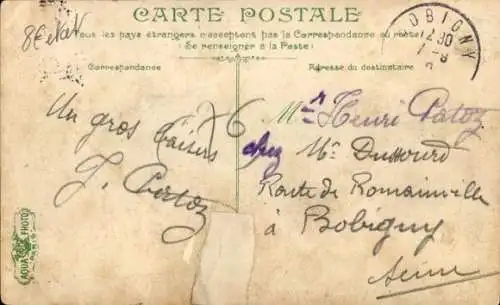 CARTE POSTALE
Tous les pays étrangers n'acceptent pas la Correspondance au recto
(Se renseigner à la Poste)
Correspondance
Adresse du destinataire
BOBIGNY
Un gros
baisers
J. Patoz
6
Mr Henri Patoz
chez Mr
Route de Romainville
à Bobigny
Seine
AQUA PHOTO
PARIS